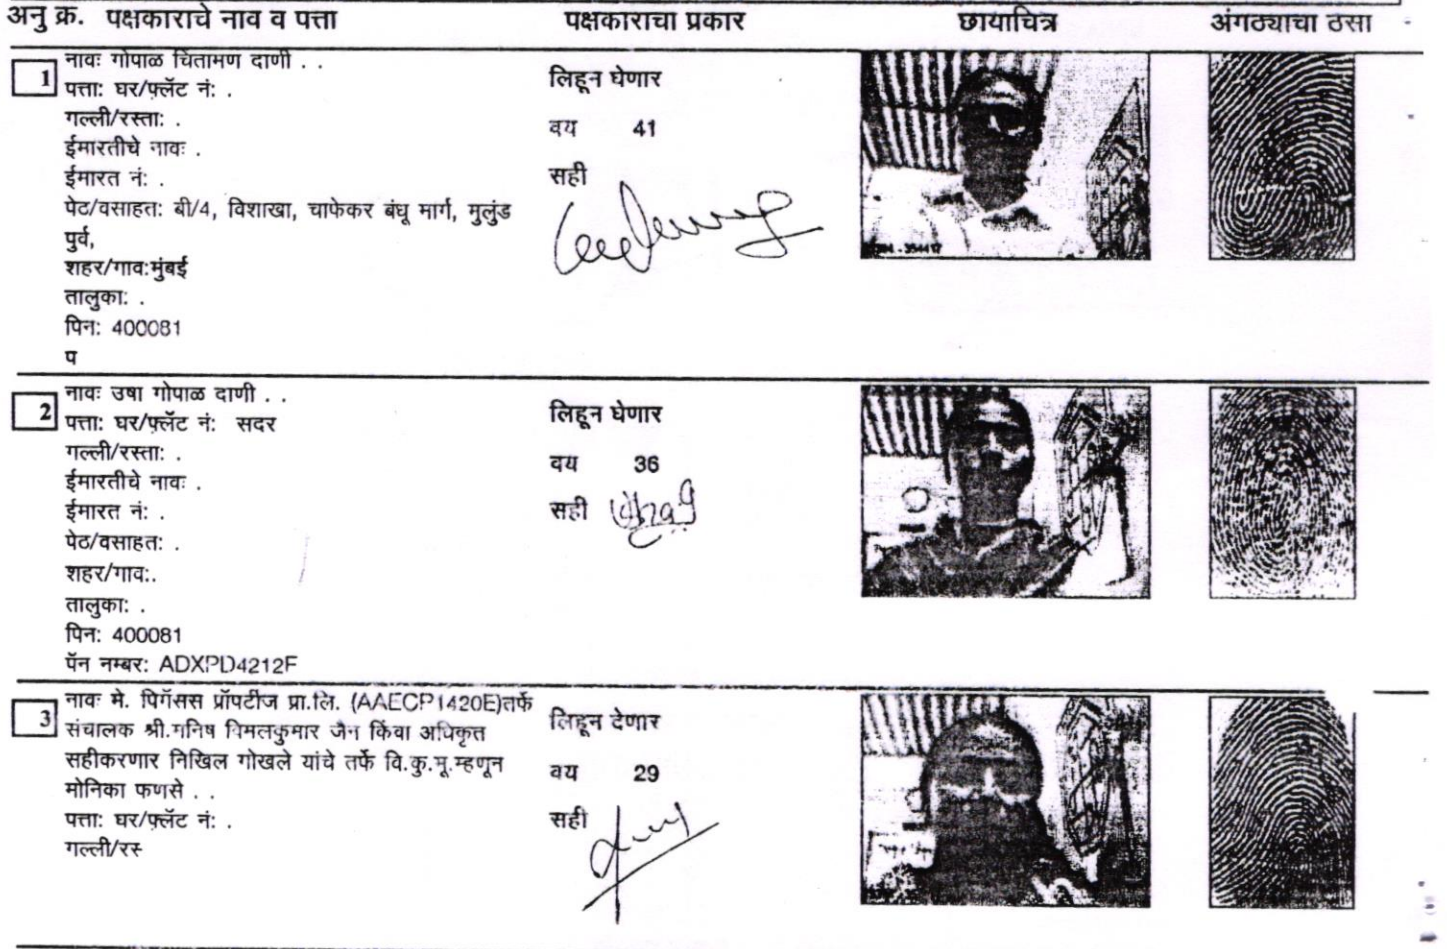 अनु क्र. पक्षकाराचे नाव व पत्ता पक्षकाराचा प्रकार छायाचित्र अंगठ्याचा ठसा
1
नावः गोपाळ चिंतामण दाणी . .
पत्ताः घर/फ़्लॅट नंः .
गल्ली/रस्ताः .
ईमारतीचे नावः .
ईमारत नंः .
पेठ/वसाहतः बी/4, विशाखा, चाफेकर बंधू मार्ग, मुलुंड
पुर्व,
शहर/गावः मुंबई
तालुकाः .
पिनः 400081
प
लिहून घेणार
वय 41
सही
2
नावः उषा गोपाळ दाणी . .
पत्ताः घर/फ़्लॅट नंः सदर
गल्ली/रस्ताः .
ईमारतीचे नावः .
ईमारत नंः .
पेठ/वसाहतः .
शहर/गावः.
तालुकाः .
पिनः 400081
पॅन नम्बरः ADXPD4212F
लिहून घेणार
वय 36
सही
3
नावः मे. पिगॅसस प्रॉपर्टीज प्रा.लि. (AAECP1420E)तर्फे
संचालक श्री.मनिष विमलकुमार जैन किंवा अधिकृत
सहीकरणार निखिल गोखले यांचे तर्फे वि.कु.मू.म्हणून
मोनिका फणसे . .
पत्ताः घर/फ़्लॅट नंः .
गल्ली/रस
लिहून देणार
वय 29
सही